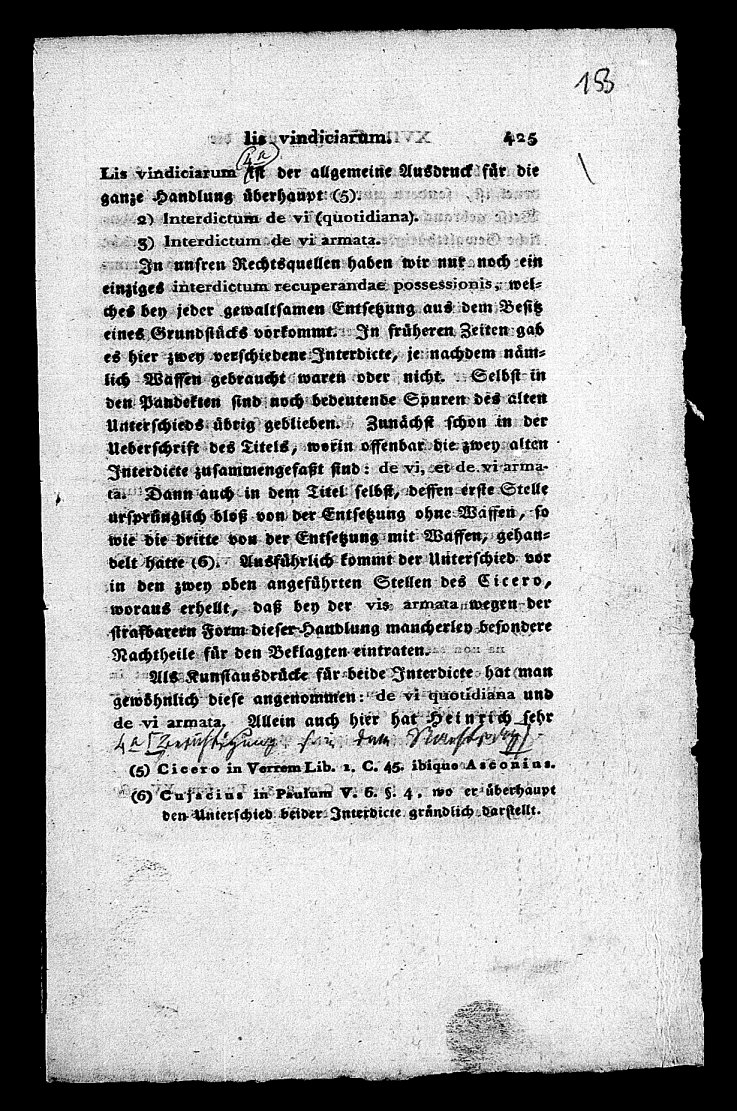 153
lis vindiciarum. 425
4a
Lis vindiciarum ist der allgemeine Ausdruck für die
ganze Handlung überhaupt (5).
2) Interdictum de vi (quotidiana).
3) Interdictum de vi armata.
In unsren Rechtsquellen haben wir nur noch ein
einziges interdictum recuperandae possessionis, wel-
ches bey jeder gewaltsamen Entsetzung aus dem Besitz
eines Grundstücks vorkommt. In früheren Zeiten gab
es hier zwey verschiedene Interdicte, je nachdem näm-
lich Waffen gebraucht waren oder nicht. Selbst in
den Pandekten sind noch bedeutende Spuren des alten
Unterschieds übrig geblieben. Zunächst schon in der
Ueberschrift des Titels, worin offenbar die zwey alten
Interdicte zusammengefaßt sind: de vi, et de vi arma-
ta. Dann auch in dem Titel selbst, dessen erste Stelle
ursprünglich bloß von der Entsetzung ohne Waffen, so
wie die dritte von der Entsetzung mit Waffen, gehan-
delt hatte (6). Ausführlich kommt der Unterschied vor
in den zwey oben angeführten Stellen des Cicero,
woraus erhellt, daß bey der vis armata wegen der
strafbarern Form dieser Handlung mancherley besondere
Nachtheile für den Beklagten eintraten.
Als Kunstausdrücke für beide Interdicte hat man
gewöhnlich diese angenommen: de vi quotidiana und
de vi armata. Allein auch hier hat Heinrich sehr
4a
(5) Cicero in Verrem Lib. 1. C. 45. ibique Asconius.
(6) Cujacius in Paulum V. 6. §. 4, wo er überhaupt
den Unterschied beider Interdicte gründlich darstellt.